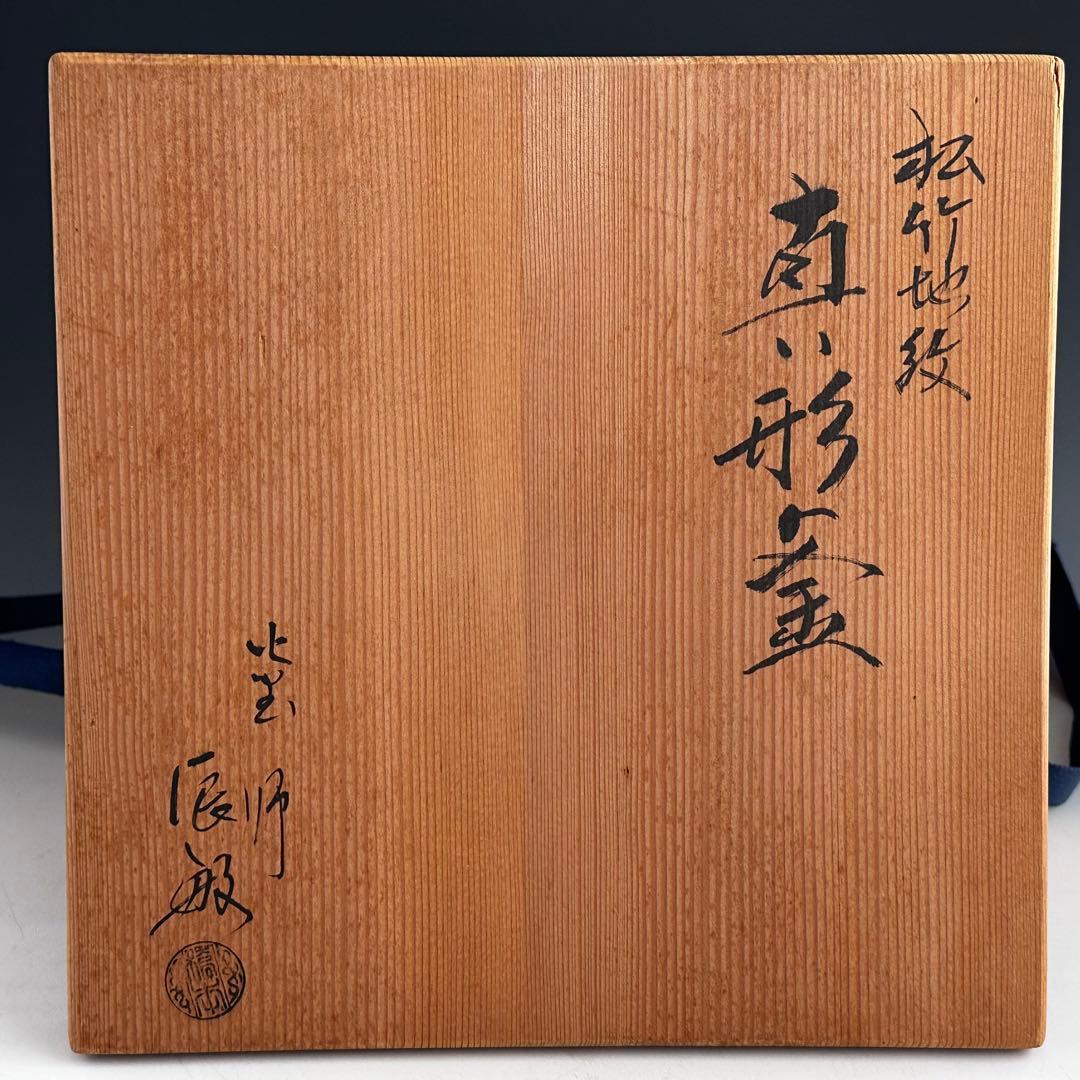 松竹地紋
真形釜
釜師
辰敏